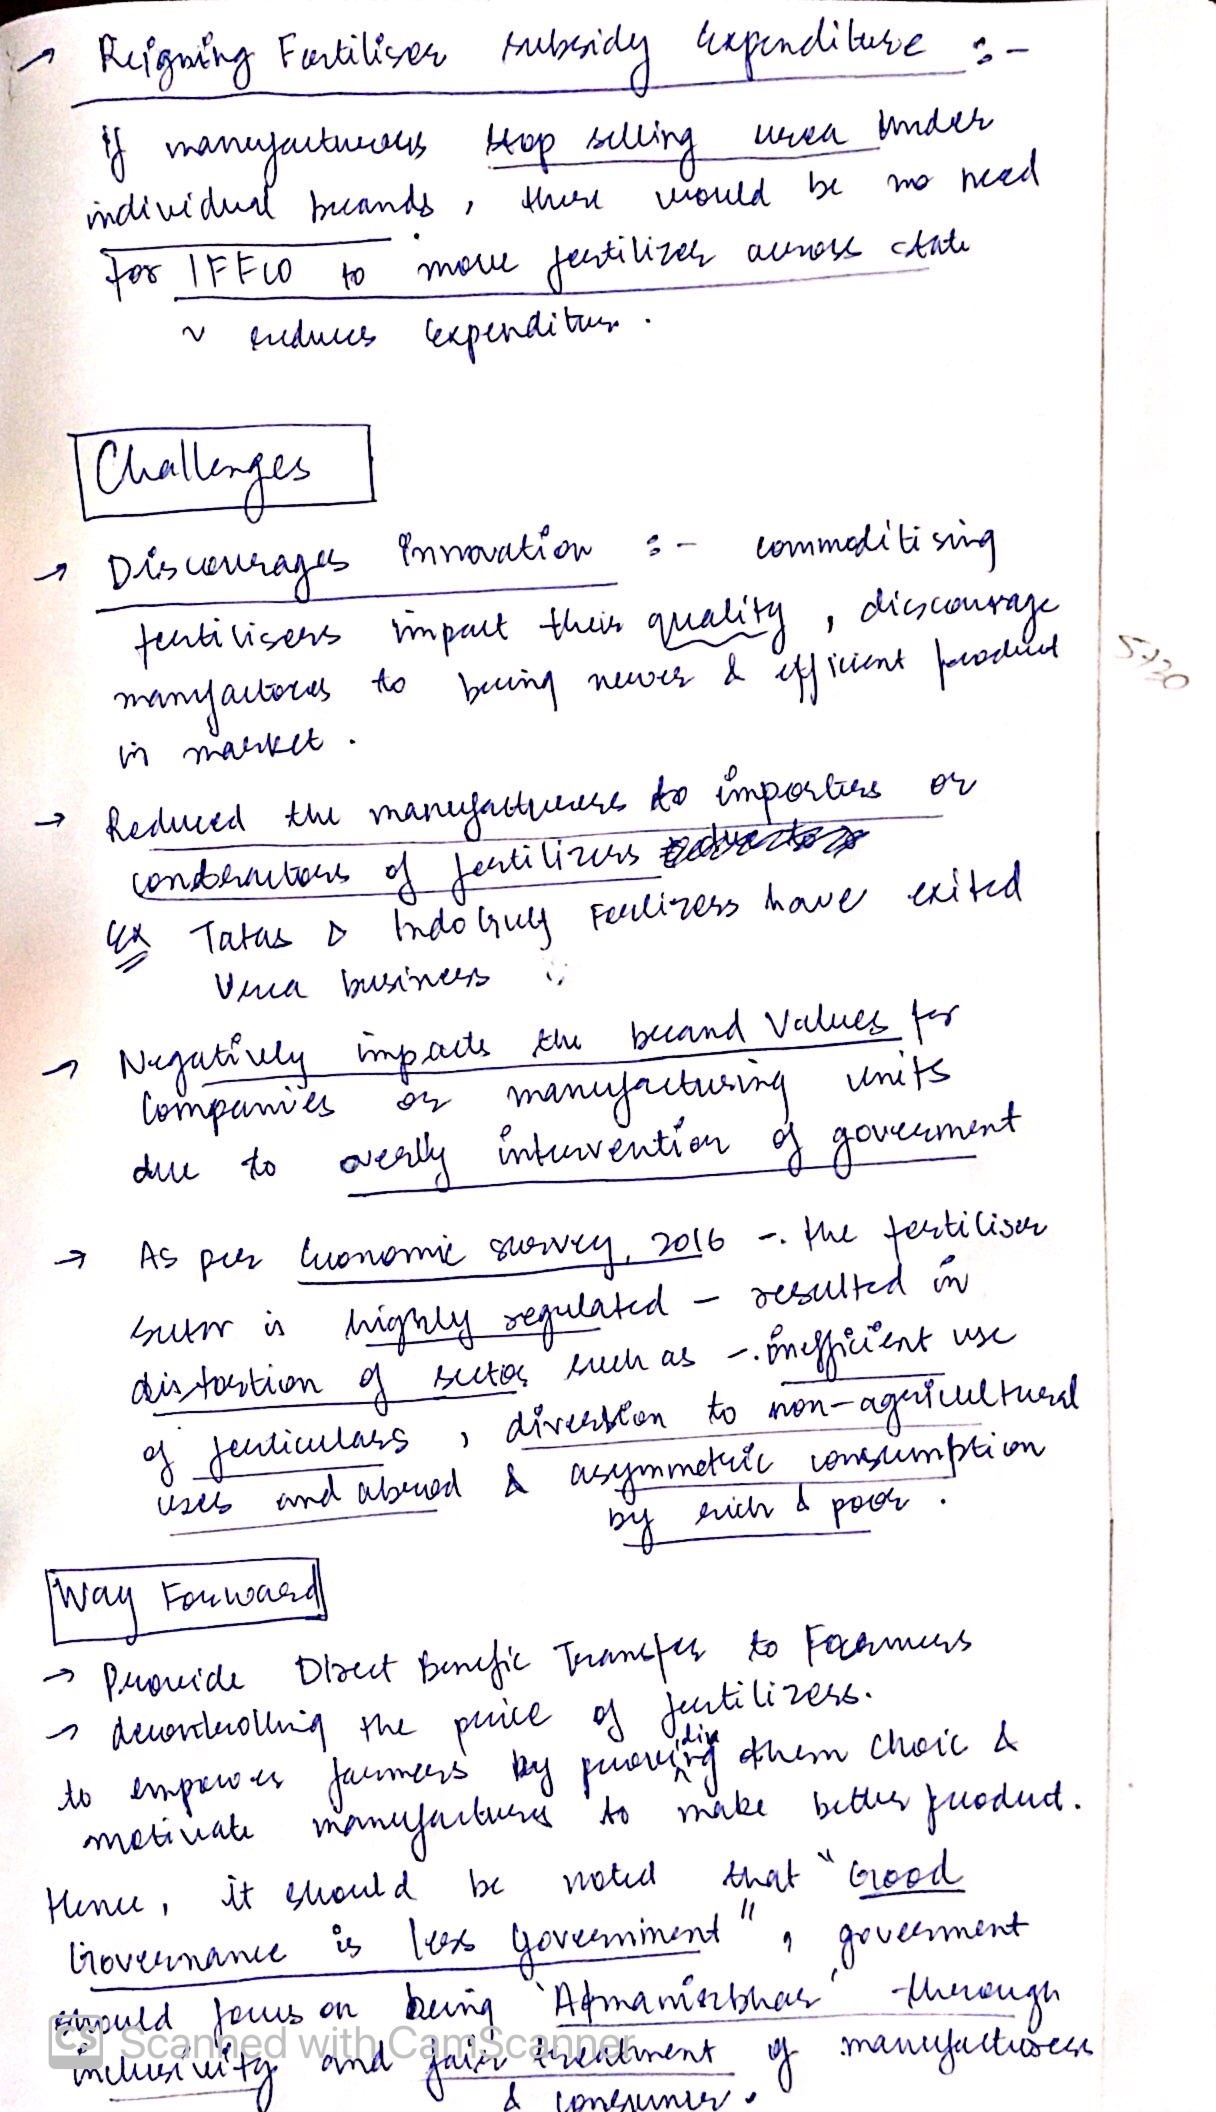 → Reigning Fertiliser subsidy expenditure :-
if manufacturers stop selling urea under
individual brands, there would be no need
for IFFCO to move fertilizer across state
reduces expenditure.
Challenges
→ Discourages innovation :- commoditising
fertilisers impact their quality, discourage
manufactores to being newer & efficient product
in market.
5:30
→ Reduced the manufacturers to importers or
contractors of fertilizers
Ex Tatas & Indo Gulf Fertlizers have exited
Urea business
→ Negatively impacts the brand values for
companies or manufacturing units
due to overly intervention of government
→ As per Economic survey, 2016 -. the fertiliser
sector is highly regulated - resulted in
distortion of sector such as -. inefficient use
of , diversion to non-agricultural
uses and abroad & asymmetric consumption
by rich & poor.
Way Forward
→ Provide Direct Benefic Transfer to Farmers
→ decontrolling the price of fertilizers.
to empower farmers by providing them choic &
motivate manufacturers to make better product.
Hence, it should be noted that "Good
Governance is less government", government
should focus on being 'Atmanirbhar' through
inclusivity and fair treatment of manufacturers
& consumer.
CS Scanned with CamScanner